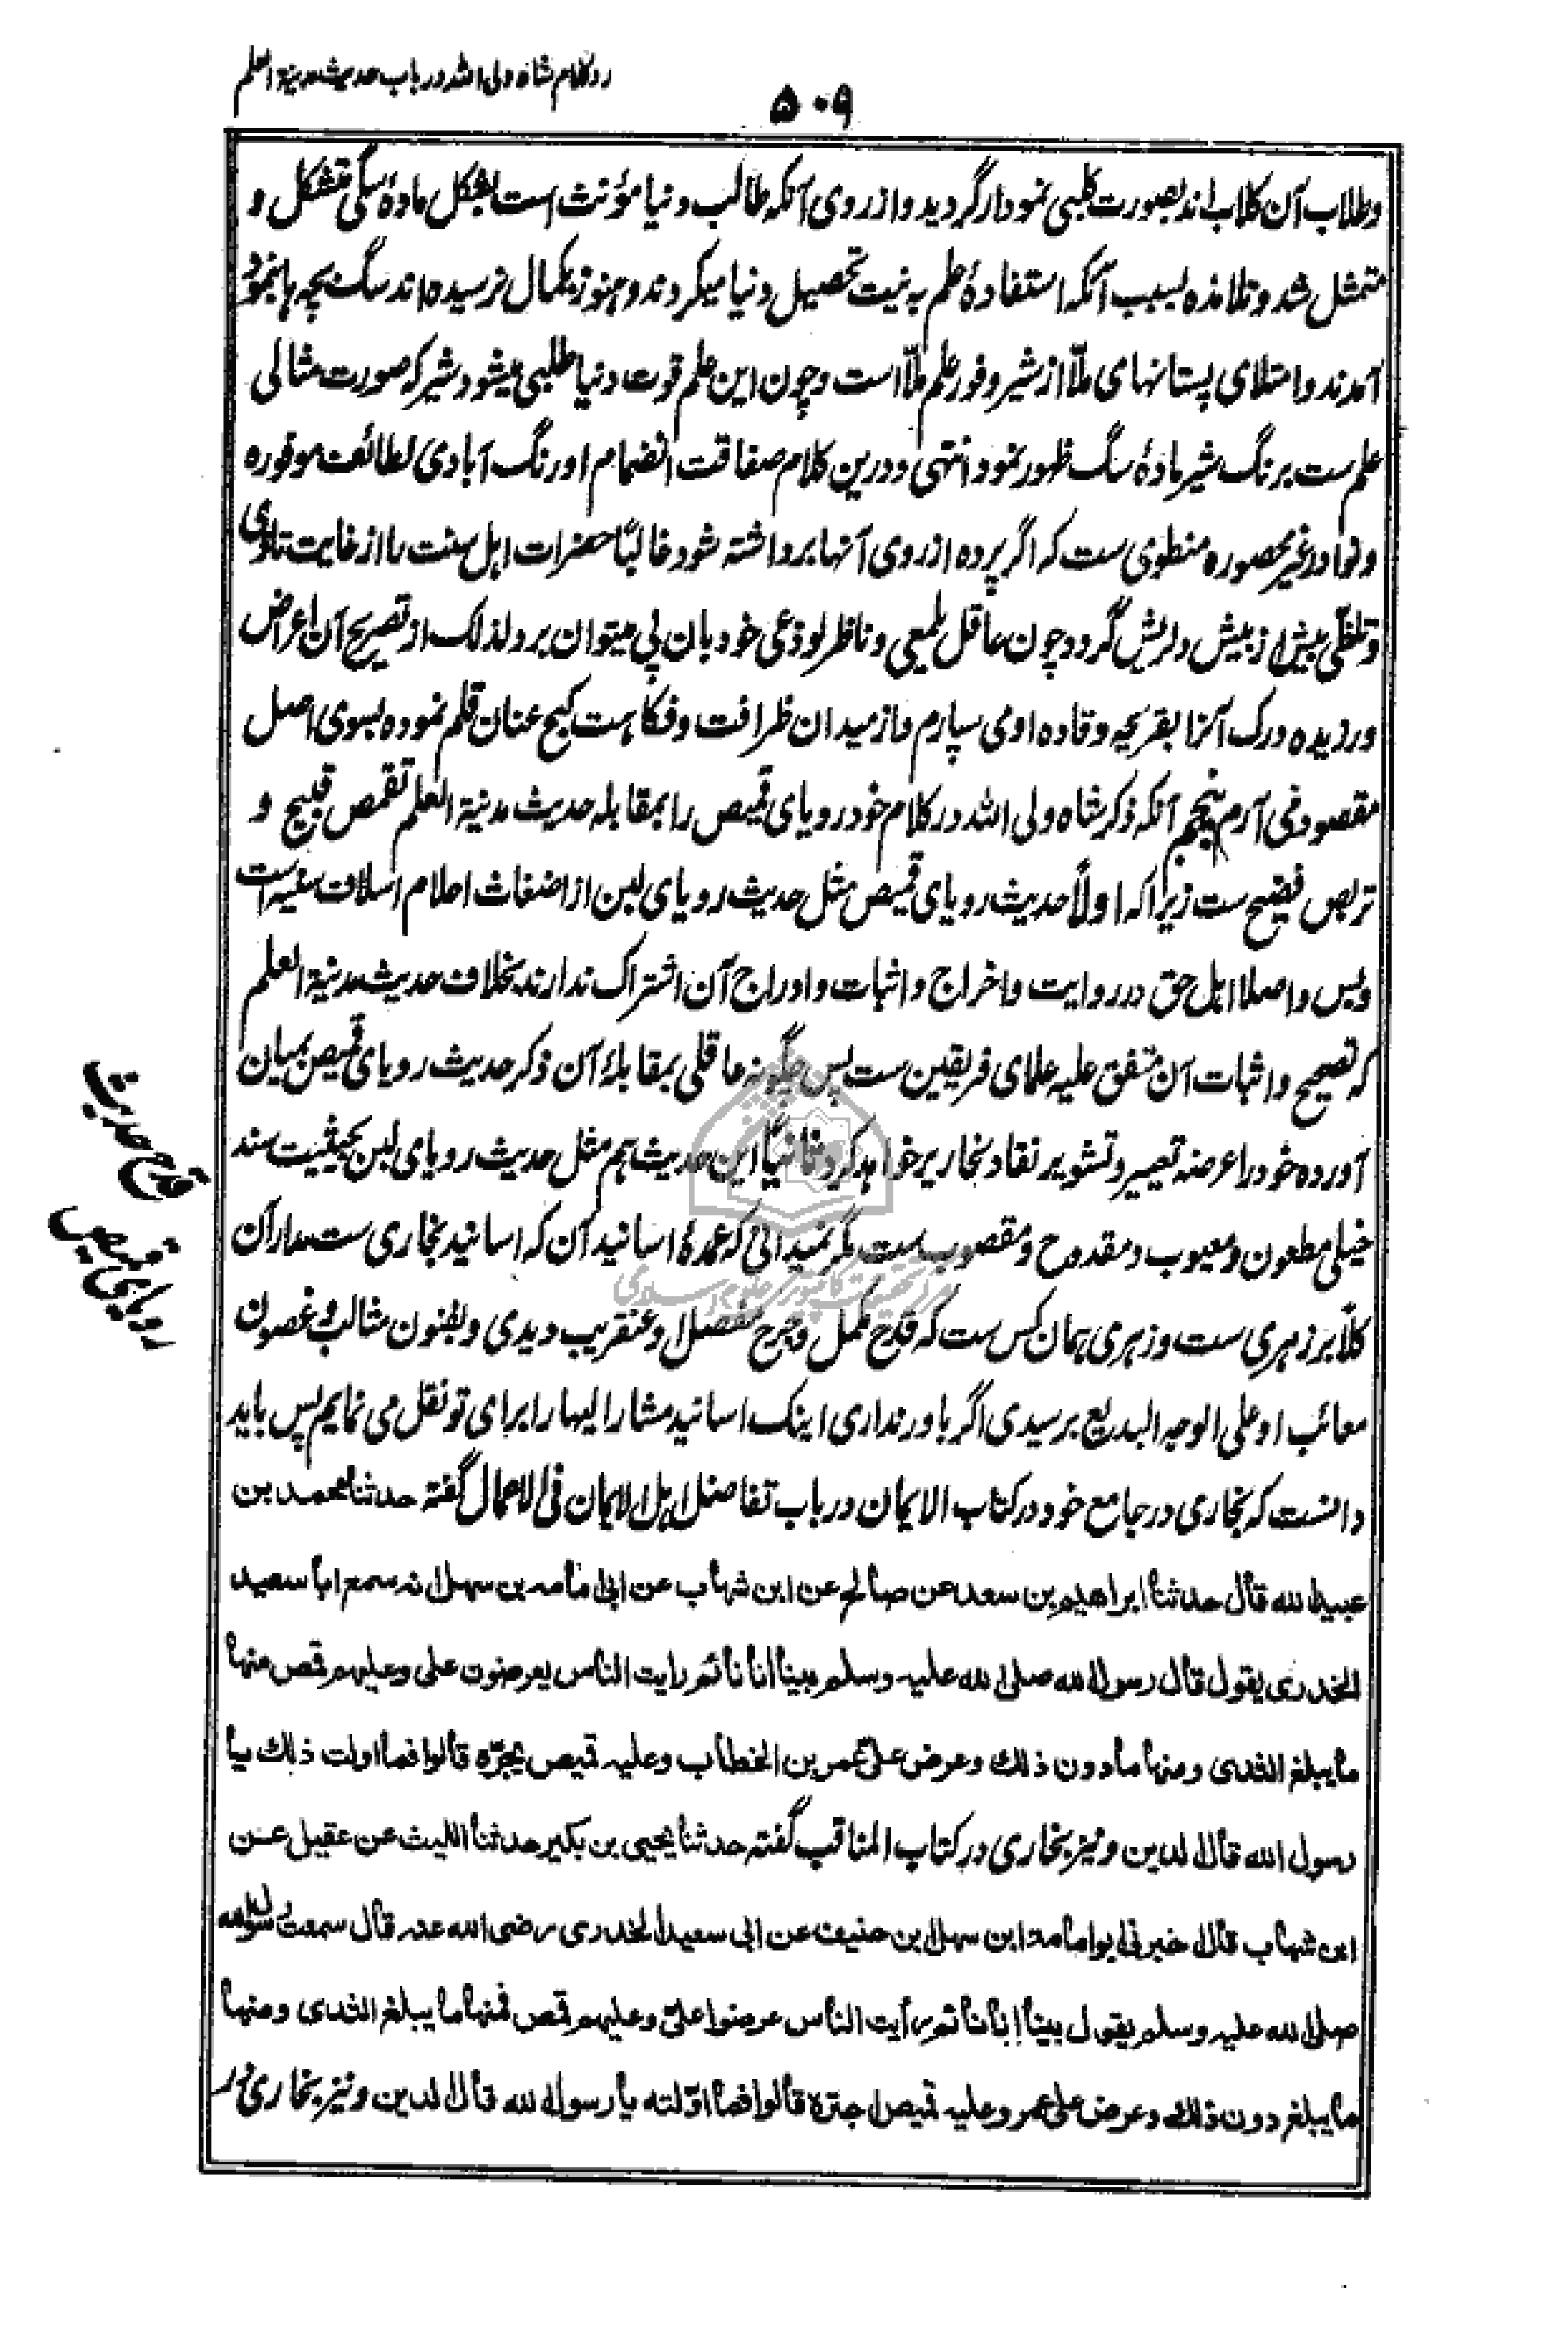 رد کلام شاه ولی الله در باب حدیث مدینة العلم
۵۰۹
و طلاب آن کلاب اند بصورت کلبی نمودار گردید و از روی آنکه طالب دنیا مؤنث است بشکل مادۀ سگی متشکل و
متمثل شد و تلامذه بسبب آنکه استفادۀ علم به نیت تحصیل دنیا میکردند و هنوز بکمال نرسیده اند سگ بچه ها بنمود
آمدند و امتلای پستانهای ملّا از شیر وفور علم ملّا است و چون این علم قوت دنیا طلبی میشود شیر که صورت مثالی
علم ست برنگ شیر مادۀ سگ ظهور نمود انتهی و درین کلام صفاقت انضمام اورنگ آبادی لطائف موفوره
و نوادر غیر محصوره منطوی ست که اگر پرده از روی آنها برداشته شود غالبًا حضرات اهل سنت را از غایت تاذی
و تلظّی بیش از بیش دلریش گردد چون عاقل یلمعی و ناظر لوذعی خود بان پی میتوان برد لذلک از تصریح آن اعراض
ورزیده درک آنرا بقریحه وقاده او می سپارم و از میدان ظرافت و فکاهت کبح عنان قلم نموده بسوی اصل
مقصود می آرم پنجم آنکه ذکر شاه ولی الله در کلام خود رویای قمیص را بمقابله حدیث مدنیة العلم تقمص قبیح و
تربص فضیح ست زیرا که اولًا حدیث رویای قمیص مثل حدیث رویای لبن از اضغاث احلام اسلاف سنیه است
و بس و اصلا اهل حق در روایت و اخراج و اثبات و ادراج آن اشتراک ندارند بخلاف حدیث مدنیة العلم
که تصحیح و اثبات آن متفق علیه علمای فریقین ست پس چگونه عاقلی بمقابلۀ آن ذکر حدیث رویای قمیص بمیان
آورده خود را عرضه تعییر و تشویر نقاد نحاریر خواهد کرد و ثانیًا این حدیث هم مثل حدیث رویای لبن بحیثیت سند
خیلی مطعون و معیوب و مقدوح و مقصوب ست مگر نمیدانی که عمدۀ اسانید آن که اسانید بخاری ست مدار آن
کلًا بر زهری ست و زهری همان کس ست که قدح مکمل و جرح مفصل او عنقریب دیدی و بفنون مثالب و غصون
معائب او علی الوجه البدیع برسیدی اگر باور نداری اینک اسانید مشار الیها را برای تو نقل می نمایم پس باید
دانست که بخاری در جامع خود در کتاب الایمان در باب تفاضل اهل الایمان فی الاعمال گفته حدثنا محمد بن
عبید الله قال حدثنا ابراهیم بن سعد عن صالح عن ابن شهاب عن ابی امامه بن سهل انه سمع ابا سعید
الخدری یقول قال رسول الله صلی الله علیه وسلم بینا انا نائم رایت الناس یعرضون علی و علیهم قمص منها
ما یبلغ الثدی و منها ما دون ذلک و عرض علیّ عمر بن الخطاب و علیه قمیص یجرّه قالوا فما اولت ذلک یا
رسول الله قال الدین و نیز بخاری در کتاب المناقب گفته حدثنا یحیی بن بکیر حدثنا اللیث عن عقیل عن
ابن شهاب قال اخبرنی ابو امامة ابن سهل بن حنیف عن ابی سعید الخدری رضی الله عنه قال سمعت رسول الله
صلی الله علیه وسلم یقول بینا انا نائم رأیت الناس عرضوا علیّ و علیهم قمص فمنها ما یبلغ الثدی و منها
ما یبلغ دون ذلک و عرض علی عمر و علیه قمیص اجتره قالوا فما اوّلته یا رسول الله قال الدین و نیز بخاری در
قدح حدیث
رویای قمیص
مرکز تحقیقات کامپیوتری علوم اسلامی